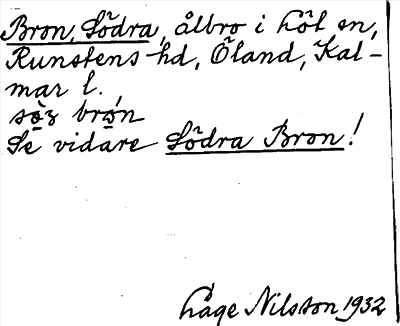 Bron, Södra, ålbro i Högby sn,
Runstens hd, Öland, Kal-
mar l.
Se vidare Södra Bron!
Åage Nilsson 1932